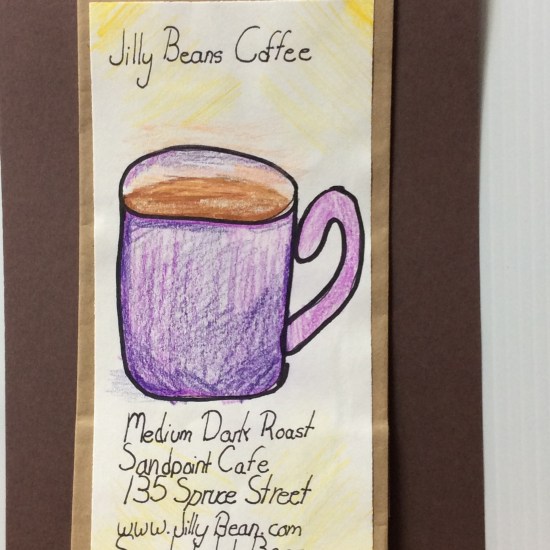 Jilly Beans Coffee
Medium Dark Roast
Sandpoint Cafe
135 Spruce Street
www.JillyBean.com